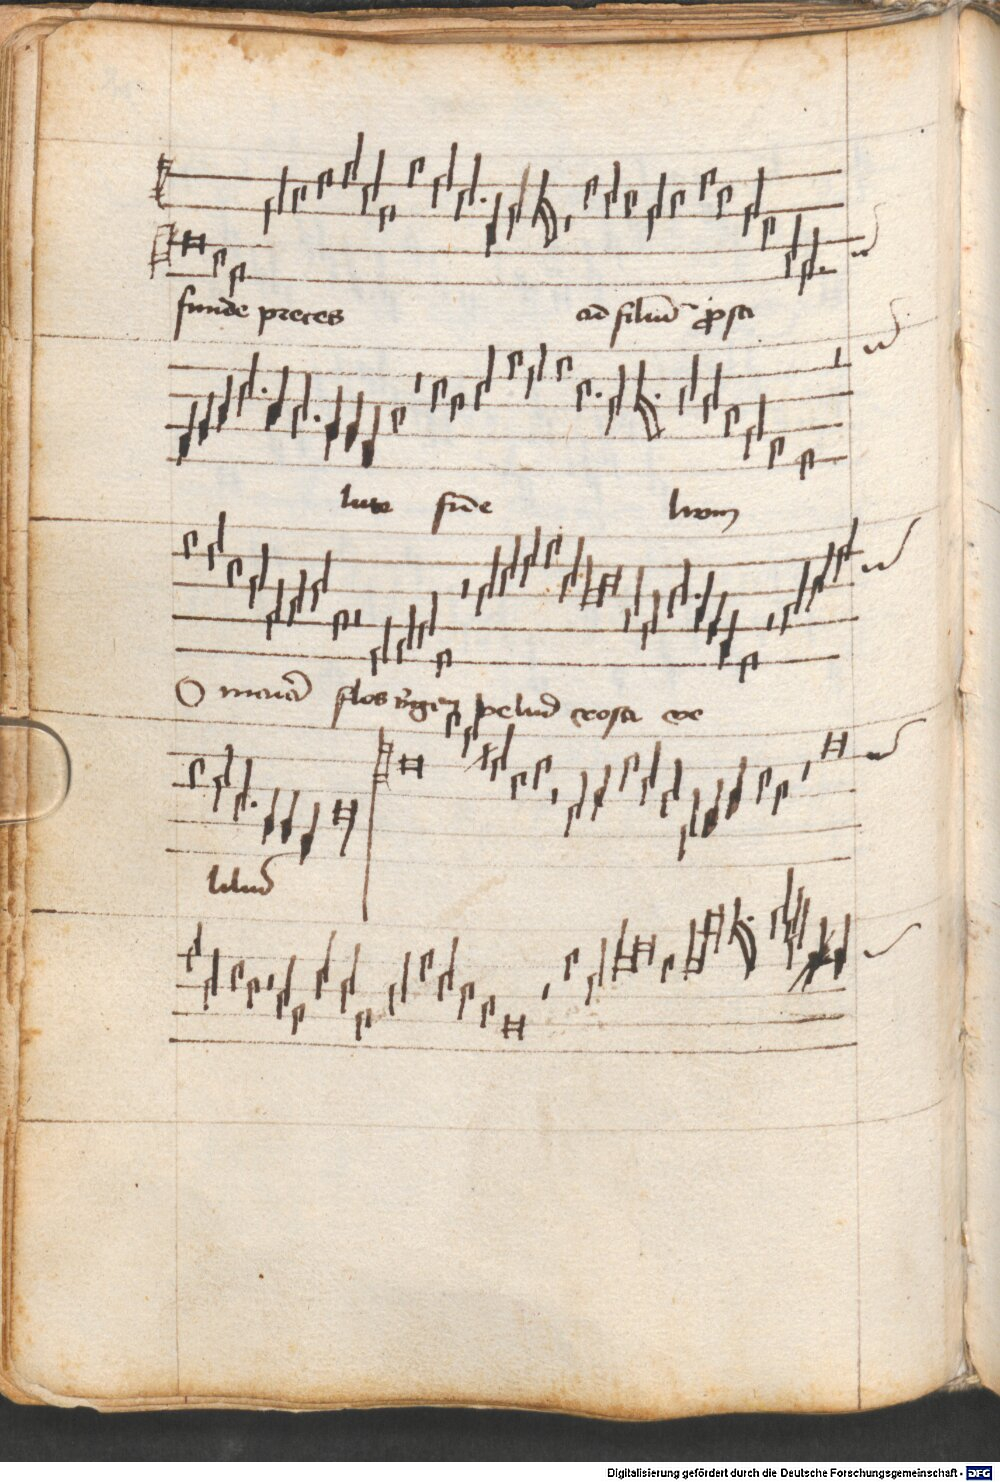 funde preces ad filiū ꝓ sa
lute fide liūm
O maria flos virginū velud rosa ve
liliū
Digitalisierung gefördert durch die Deutsche Forschungsgemeinschaft - DFG